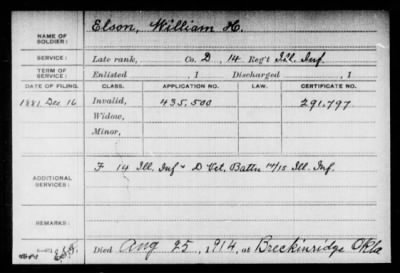 NAME OF SOLDIER: Elson, William H.
SERVICE: Late rank, Co. D, 14 Reg't Ill. Inf.
TERM OF SERVICE: Enlisted , 1 Discharged , 1
DATE OF FILING. CLASS. APPLICATION NO. LAW. CERTIFICATE NO.
1881 Dec 16 Invalid, 435.500 291.797
Widow,
Minor,
ADDITIONAL SERVICES: F 14 Ill. Inf & D Vet. Battn 14/15 Ill. Inf.
REMARKS:
Died Aug 25, 1914, at Breckinridge Okla